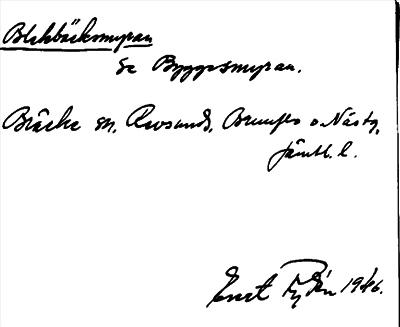 Blekbäcksmyran
se Byggesmyran.
Bräcke sn, Revsunds, Brunflo o Näs tg,
Jämtl. l.
Ernst Tydén 1946.